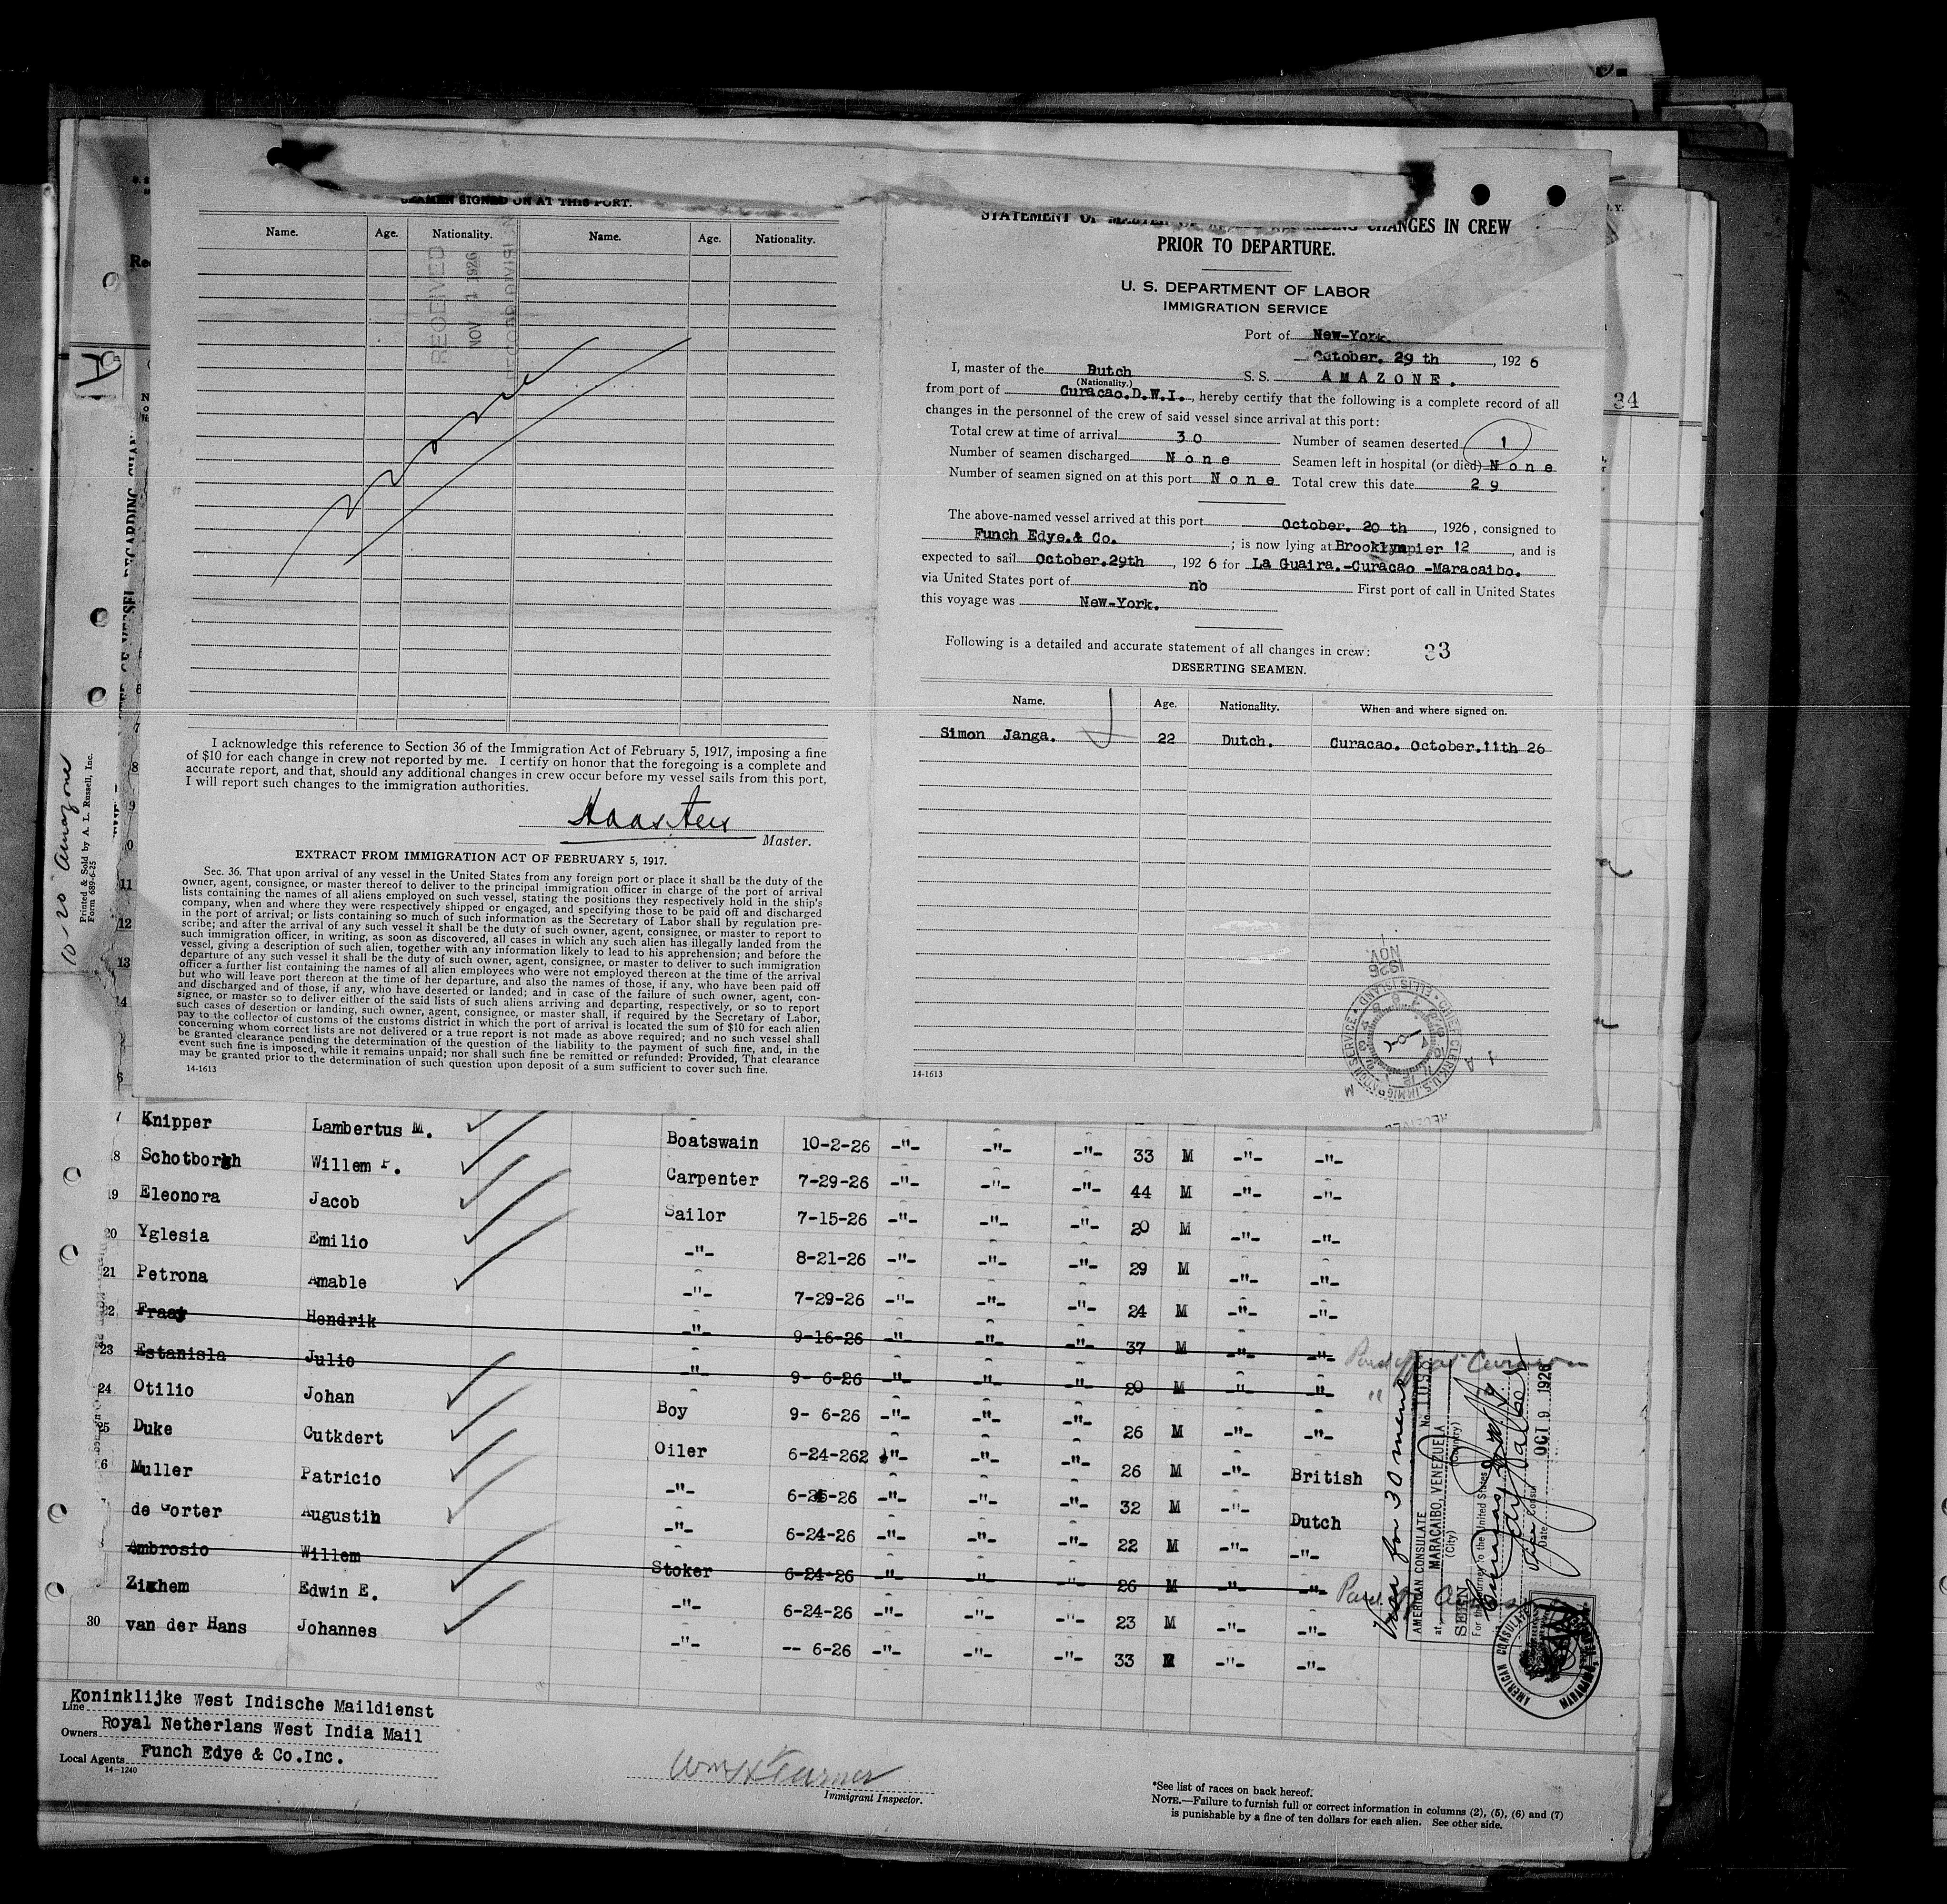 SEAMEN SIGNED ON AT THIS PORT.
Name. Age. Nationality. Name. Age. Nationality.
RECEIVED
NOV 1 1926
RECORD DIVISION
None
I acknowledge this reference to Section 36 of the Immigration Act of February 5, 1917, imposing a fine
of $10 for each change in crew not reported by me. I certify on honor that the foregoing is a complete and
accurate report, and that, should any additional changes in crew occur before my vessel sails from this port,
I will report such changes to the immigration authorities.
Master.
EXTRACT FROM IMMIGRATION ACT OF FEBRUARY 5, 1917.
Sec. 36. That upon arrival of any vessel in the United States from any foreign port or place it shall be the duty of the
owner, agent, consignee, or master thereof to deliver to the principal immigration officer in charge of the port of arrival
lists containing the names of all aliens employed on such vessel, stating the positions they respectively hold in the ship's
company, when and where they were respectively shipped or engaged, and specifying those to be paid off and discharged
in the port of arrival; or lists containing so much of such information as the Secretary of Labor shall by regulation pre-
scribe; and after the arrival of any such vessel it shall be the duty of such owner, agent, consignee, or master to report to
such immigration officer, in writing, as soon as discovered, all cases in which any such alien has illegally landed from the
vessel, giving a description of such alien, together with any information likely to lead to his apprehension; and before the
departure of any such vessel it shall be the duty of such owner, agent, consignee, or master to deliver to such immigration
officer a further list containing the names of all alien employees who were not employed thereon at the time of the arrival
but who will leave port thereon at the time of her departure, and also the names of those, if any, who have been paid off
and discharged and of those, if any, who have deserted or landed; and in case of the failure of such owner, agent, con-
signee, or master so to deliver either of the said lists of such aliens arriving and departing, respectively, or so to report
such cases of desertion or landing, such owner, agent, consignee, or master shall, if required by the Secretary of Labor,
pay to the collector of customs of the customs district in which the port of arrival is located the sum of $10 for each alien
concerning whom correct lists are not delivered or a true report is not made as above required; and no such vessel shall
be granted clearance pending the determination of the question of the liability to the payment of such fine, and, in the
event such fine is imposed, while it remains unpaid; nor shall such fine be remitted or refunded: Provided, That clearance
may be granted prior to the determination of such question upon deposit of a sum sufficient to cover such fine.
14-1613
STATEMENT OF MASTER OF VESSEL REGARDING CHANGES IN CREW
PRIOR TO DEPARTURE.
U. S. DEPARTMENT OF LABOR
IMMIGRATION SERVICE
Port of New-York.
October. 29 th, 1926
I, master of the Dutch S.S. AMAZONE.
(Nationality.)
from port of Curacao.D.W.I., hereby certify that the following is a complete record of all
changes in the personnel of the crew of said vessel since arrival at this port:
Total crew at time of arrival 30 Number of seamen deserted 1
Number of seamen discharged None Seamen left in hospital (or died) None
Number of seamen signed on at this port None Total crew this date 29
The above-named vessel arrived at this port October. 20 th, 1926, consigned to
Funch Edye.& Co. ; is now lying at Brooklynpier 12, and is
expected to sail October.29th, 1926 for La Guaira.-Curacao -Maracaibo.
via United States port of no First port of call in United States
this voyage was New-York.
Following is a detailed and accurate statement of all changes in crew: 33
DESERTING SEAMEN.
Name. Age. Nationality. When and where signed on.
Simon Janga. 22 Dutch. Curacao. October.11th 26
14-1613
1926
NOV 1
CHIEF CLERK, U.S. IMMIGRATION SERVICE
ELLIS ISLAND
34
10-20 Amazone
Printed & Sold by A. L. Russell, Inc.
Form 689-6-25
7 Knipper Lambertus M. Boatswain 10-2-26 -"- -"- -"- 33 M -"- -"-
18 Schotborgh Willem P. Carpenter 7-29-26 -"- -"- -"- 44 M -"- -"-
19 Eleonora Jacob Sailor 7-15-26 -"- -"- -"- 20 M -"- -"-
20 Yglesia Emilio -"- 8-21-26 -"- -"- -"- 29 M -"- -"-
21 Petrona Amable -"- 7-29-26 -"- -"- -"- 24 M -"- -"-
22 Fraay Hendrik -"- 9-16-26 -"- -"- -"- 37 M -"- -"- Paid off at Curacao
23 Estanisla Julio -"- 9- 6-26 -"- -"- -"- 20 M -"- -"- "
24 Otilio Johan Boy 9- 6-26 -"- -"- -"- 26 M -"- -"-
25 Duke Cutkdert Oiler 6-24-262 -"- -"- -"- 26 M -"- British
6 Muller Patricio -"- 6-25-26 -"- -"- -"- 32 M -"- Dutch
de Gorter Augustin -"- 6-24-26 -"- -"- -"- 22 M -"- -"-
Ambrosio Willem Stoker 6-24-26 -"- -"- -"- 26 M -"- -"- Paid off
Zichem Edwin E. -"- 6-24-26 -"- -"- -"- 23 M -"- -"-
30 van der Hans Johannes -"- -- 6-26 -"- -"- -"- 33 M -"- -"-
Visa for 30 men
AMERICAN CONSULATE
No. 1098
at MARACAIBO, VENEZUELA
(City) (Country)
SEEN
For the journey to the United States
Curacao
Vice Consul
Date OCT 9 1926
AMERICAN CONSULATE
MARACAIBO
Line Koninklijke West Indische Maildienst
Owners Royal Netherlans West India Mail
Local Agents Funch Edye & Co.Inc.
14-1240
Wm H Turner
Immigrant Inspector.
*See list of races on back hereof.
NOTE.—Failure to furnish full or correct information in columns (2), (5), (6) and (7)
is punishable by a fine of ten dollars for each alien. See other side.